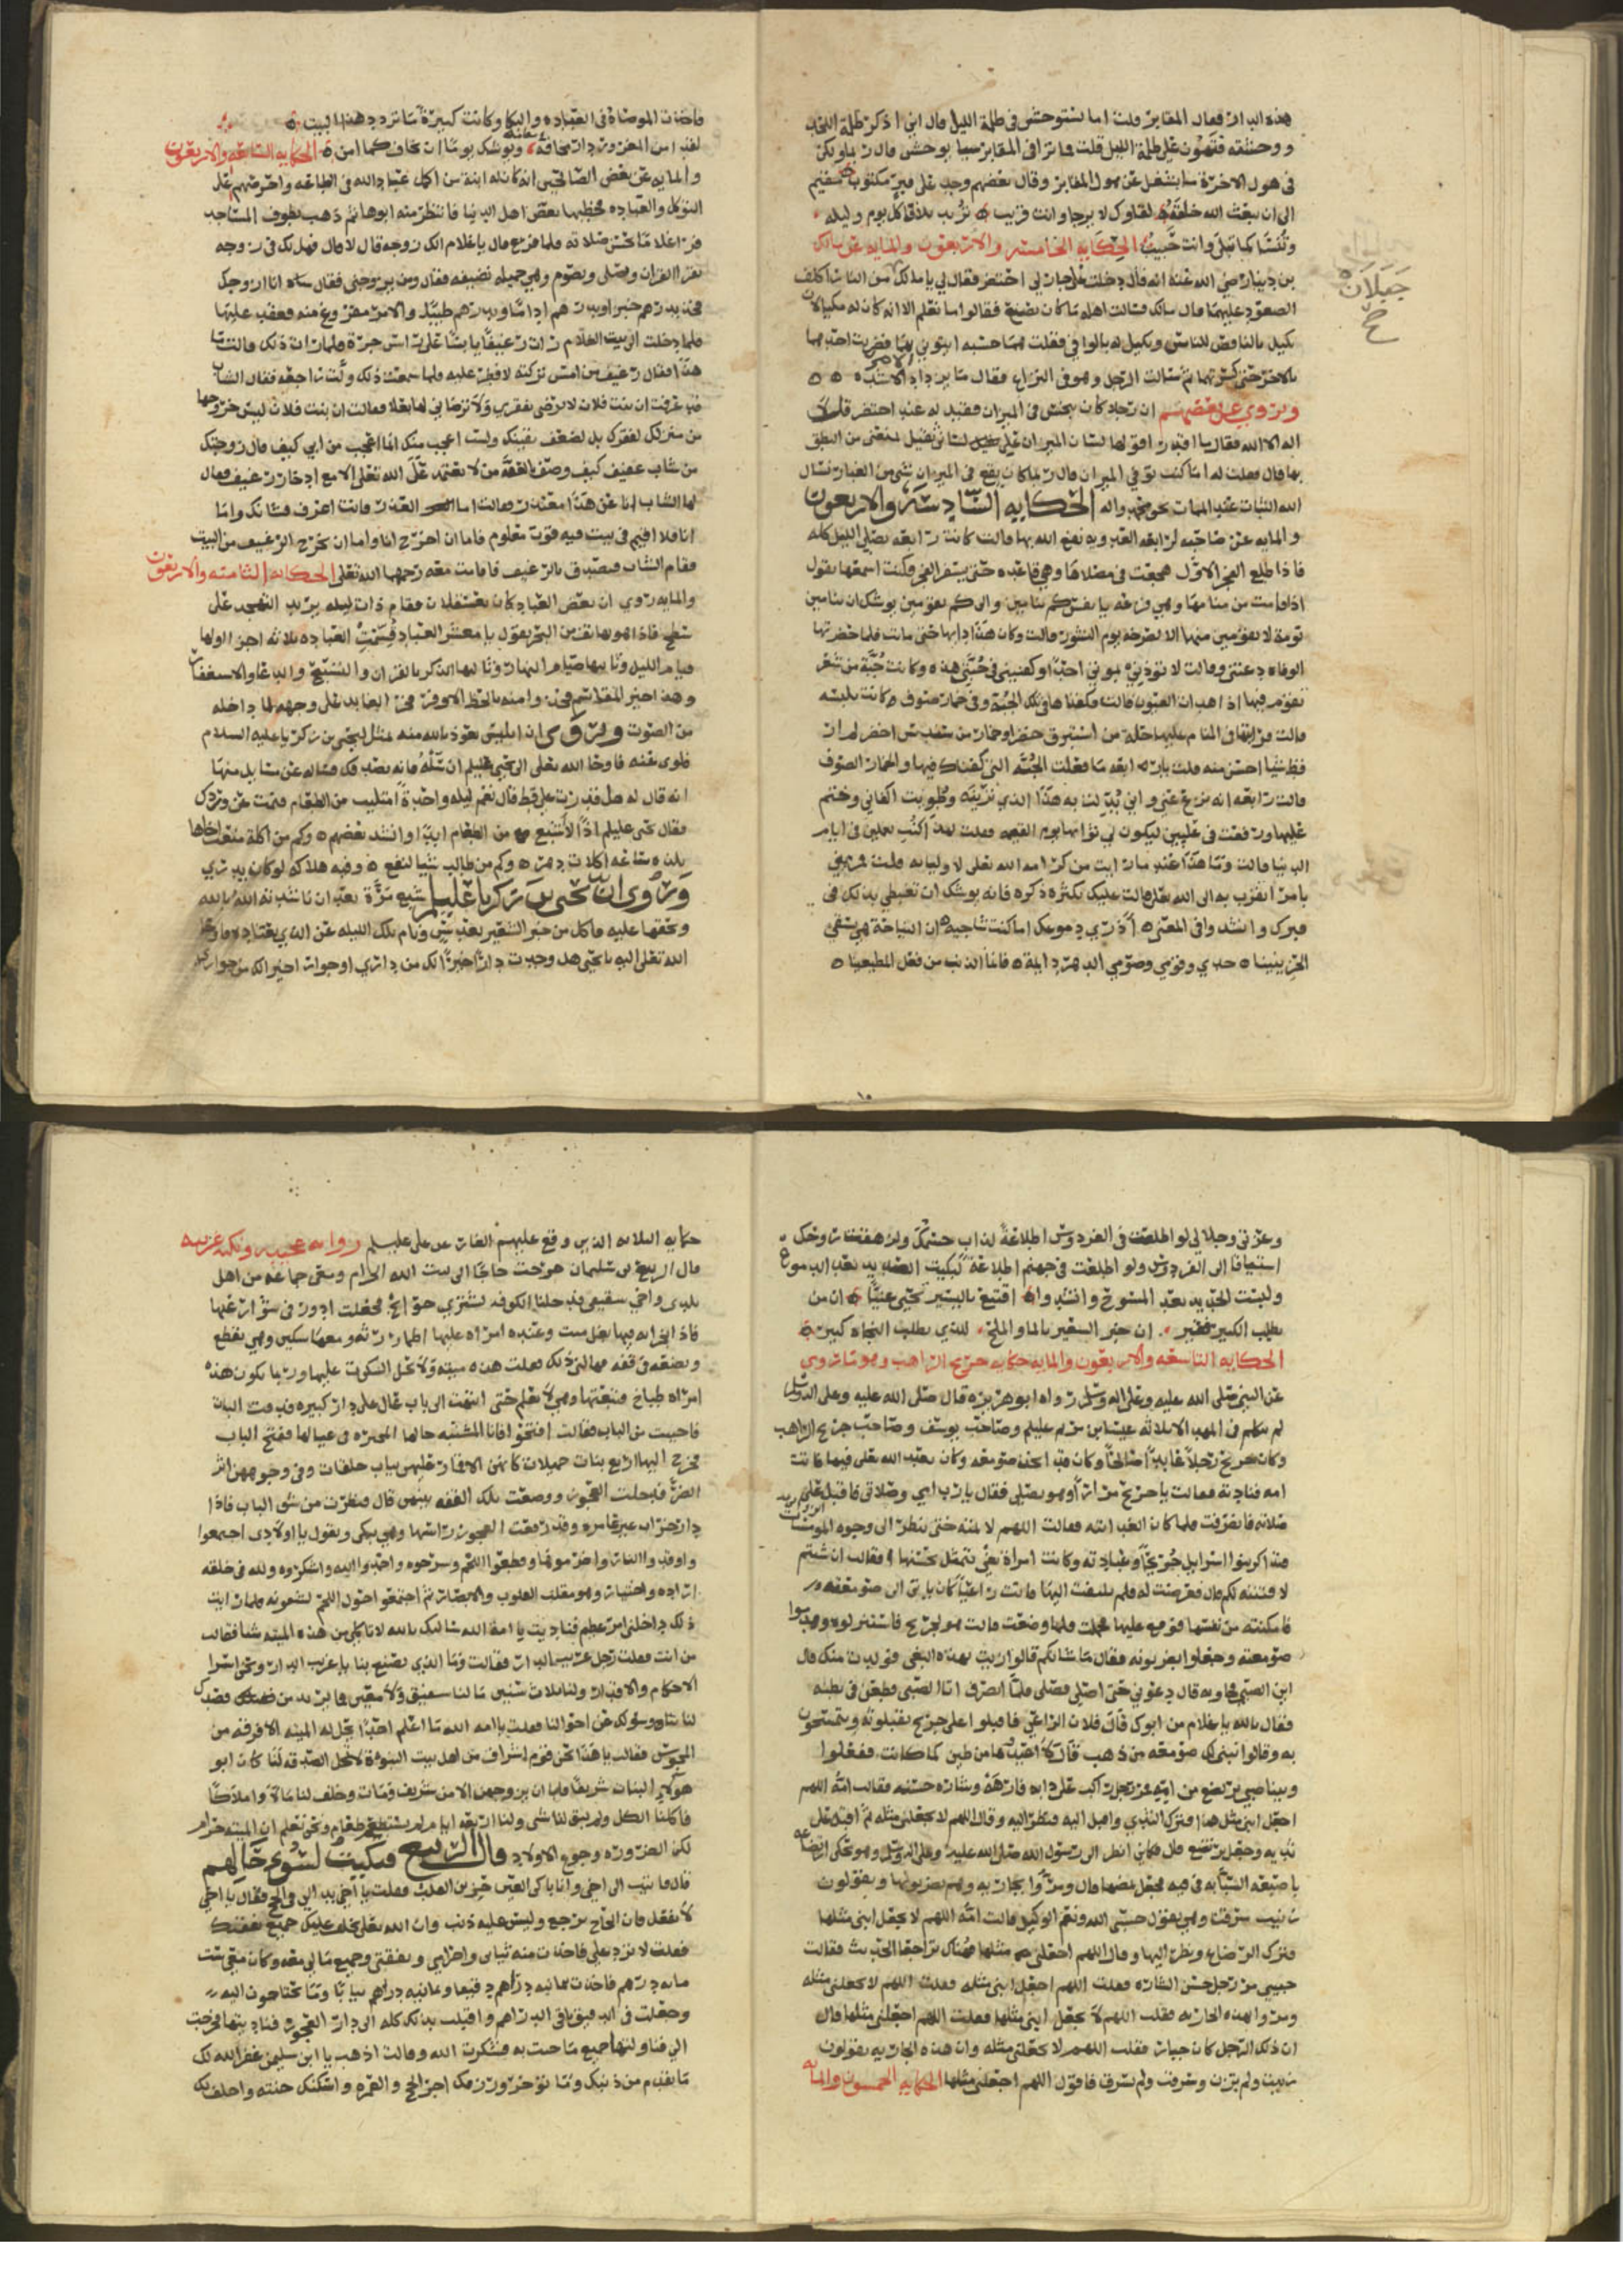 هذه الدار فقال المقابر قلت اما تستوحش في ظلمة الليل قال اني اذكر ظلمة اللحد
ووحشته فتهون علي ظلمة الليل قلت فما ترى في المقابر شيا يوحش قال ربما ولكن
في هول الاخرة ما يشغل عن هول المقابر وقال بعضهم وجد على قبر مكتوب مقيم
الى ان يبعث الله خلقه لقاوك لا يرجا وانت قريب تزيد بلا في كل يوم وليله
وتنسا كما تبلى وانت حبيب الحكايه الخامسه والاربعون والمايه عن مالك
بن دينار رضي الله عنه انه قال دخلت على جار لي احتضر فقال لي يا مالك من النار اكلف
الصعود عليهما قال مالك فسالت اهله ما كان يصنع فقالوا ما نعلم الا انه كان له مكيالان
يكيل بالناقص للناس ويكيل له بالوافي فقلت هما حسبه ايتوني بهما فضربت احدهما
بالاخر حتى كسرتهما ثم سالت الرجل وهو في النزاع فقال ما يزداد الامر الا شده
وروي عن بعضهم ان رجلا كان يبخس في الميزان فقيل له عند احتضر قل لا
اله الا الله فقال ما اقدر اقولها لسان الميزان على لساني ثقيل يمنعني من النطق
بها قال فقلت له اما كنت توفي الميزان قال ربما كان يقع في الميزان شي من الغبار نسال
الله الثبات عند الممات بحق محمد واله الحكايه السادسه والاربعون
والمايه عن صاحبه لرابعه العدويه نفع الله بها قالت كانت رابعه تصلي الليل كله
فاذا طلع الفجر الاول هجعت في مصلاها وهي قاعده حتى يسفر الفجر وكنت اسمعها تقول
اذا قامت من منامها وهي فزعه يا نفس كم تنامين والى كم تقومين يوشك ان تنامين
نومة لا تقومين منها الا لصرخه يوم النشور قالت وكان هذا دابها حتى ماتت فلما حضرتها
الوفاه دعتني وقالت لا تؤذني بموتي احدا وكفنيني في جبتي هذه وكانت جبة من شعر
تقوم فيها اذا هدات العيون قالت فكفناها في تلك الجبه وفي خمار صوف كانت تلبسه
قالت فرايتها في المنام عليها حلة من استبرق خضرا وخمار من سندس اخضر لم ار
قط شيا احسن منه قلت يا رابعه ما فعلت الجبه التي كفناك فيها والخمار الصوف
قالت رابعه انه نزع عني وابدلنا به هذا الذي ترينه وطويت اكفاني وختم
عليها ورفعت في عليين ليكون لي ثوابها يوم القيمه فقلت لهذا كنت تعملين في ايام
الدنيا قالت وما هذا عند ما رايت من كرامه الله تعلى لاوليايه قلت مريني
بامر اتقرب به الى الله تعلى قالت عليك بكثره ذكره فانه يوشك ان تغبطي بذلك في
قبرك وانشدوا في المعنى اذري دموعك اما كنت شاجيه ان النياحة هي تشفي
الحزينينا جدي وقومي وصومي الدهر دايمة فانما الذنب من فعل المطيعينا
جميلان
خ
فاخذت الموضاة في العباده والبكا وكانت كبيرة ما تردد هذا البيت
لقد امن المغرور دار مخافه ويوشك يوما ان يخاف كما امن الحكايه السابعه والاربعون
والمايه عن بعض الصالحين انه كان له ابنة من اكمل عباد الله في الطاعه واحرصهم على
التوكل والعباده فخطبها بعض اهل الدنيا فانتظر منه ابوها ثم ذهب يطوف المساجد
فراى غلاما يحسن صلاته فلما فرغ قال يا غلام الك زوجه قال لا قال فهل لك في زوجه
تقرا القران وتصلي وتصوم وهي جميله نضيفه فقال ومن يزوجني فقال انا ازوجك
فخذ بدرهم خبزا وبدرهم اداما وبدرهم طيبا والامر مفروغ منه فعقد عليها
فلما دخلت الى بيت الغلام رات رغيفا يابسا على راس جرة فلما رات ذلك قالت ما
هذا فقال رغيف من امس تركته لافطر عليه فلما سمعت ذلك ولت راجعه فقال الشاب
قد عرفت ان بنت فلان لا ترضى بفقري ولا ترضا بي لها بعلا فقالت ان بنت فلان ليس خروجها
من منزلك لفقرك بل لضعف يقينك ولست اعجب منك انما اعجب من ابي كيف قال زوجتك
من شاب عفيف كيف وصف بالعفة من لا يعتمد على الله تعلى الا مع ادخار رغيف فقال
لها الشاب انا عن هذا معتذر فقالت اما العذر فانت اعرف بشانك واما
انا فلا اقيم في بيت فيه قوت معلوم فاما ان اخرج انا واما ان يخرج الرغيف من البيت
فقام الشاب فتصدق بالرغيف فاقامت معه رحمهما الله تعلى الحكايه الثامنه والاربعون
والمايه روي ان بعض العباد كان بعسقلان فقام ذات ليله يريد التهجد على
سطح فاذا هو بهاتف من البحر يقول يا معشر العباد قسمت العباده ثلاثه اجزا اولها
قيام الليل وثانيها صيام النهار وثالثها الذكر بالقران والتسبيح والدعا والاستغفار
وهذا خير المقاسم فخذوا منه بالحظ الاوفر فخر العابد على وجهه لما داخله
من الصوت وروي ان ابليس نعوذ بالله منه تمثل ليحيى بن زكريا عليه السلام
فلوى عنه فاوحا الله تعلى الى يحيى عليلم ان سله فانه يصدقك فساله عن مسايل منها
انه قال له هل قدرت علي قط قال نعم ليله واحدة امتليت من الطعام فنمت عن وردك
فقال يحيى عليلم اذا لا اشبع من الطعام ابدا وانشد بعضهم وكم من اكلة منعت اخاها
بلذه ساعه اكلات دهر وكم من طالب شيا لنفع وفيه هلاكه لو كان يدري
وروي ان يحيى بن زكريا عليلم شبع مرة بعد ان ناشدته الله بالله
وبحقها عليه فاكل من خبز الشعير بعد شي ونام تلك الليله عن الذي يعتاده فاوحا
الله تعلى اليه يا يحيى هل وجدت دارا خيرا لك من داري او جوارا خيرا لك من جواري
وعزتي وجلالي لو اطلعت في الفردوس اطلاعة لذاب جسمك ولزهقت روحك
اشتياقا الى الفردوس ولو اطلعت في جهنم اطلاعة لبكيت الصديد بعد الدموع
ولبست الحديد بعد المسوح وانشدوا اقتنع باليسير تحيى عنيا ان من
يطلب الكبير فقير ان خبز الشعير بالما والملح للذي يطلب النجاه كبير
الحكايه التاسعه والاربعون والمايه حكايه جريج الراهب وهو ما روي
عن النبي صلى الله عليه وعلى اله وسلم رواه ابو هريره قال صلى الله عليه وعلى اله وسلم
لم يتكلم في المهد الا ثلاثه عيسى بن مريم عليلم وصاحب يوسف وصاحب جريج الراهب
وكان جريج رجلا عابدا صالحا وكان قد اتخذ صومعه وكان يعبد الله تعلى فيها فاتت
امه فنادته فقالت يا جريج مرارا وهو يصلي فقال يا رب امي وصلاتي فاقبل على
صلاته فانصرفت فلما كان الغد اتته فقالت اللهم لا تمته حتى ينظر الى وجوه المومسات
فتذاكر بنوا اسرايل جريجا وعبادته وكانت امراة بغي يتمثل بحسنها فقالت ان شيتم
لا فتننه لكم قال فعرضت له فلم يلتفت اليها فاتت راعيا كان ياوي الى صومعته
فامكنته من نفسها فوقع عليها فحملت فلما وضعت قالت هو لجريج فاستنزلوه وهدموا
صومعته وجعلوا يضربونه فقال ما شانكم قالوا زنيت بهذه البغي فولدت منك قال
اين الصبي فجاوبه قال دعوني حتى اصلي فصلى فلما انصرف اتا الصبي فطعن في بطنه
فقال بالله يا غلام من ابوك قال فلان الراعي فاقبلوا على جريج يقبلونه ويتمسحون
به وقالوا نبني لك صومعه من ذهب قال لا اعيدوها من طين كما كانت ففعلوا
وبينا صبي يرضع من امه مر رجل راكب على دابه فارهة وشاره حسنه فقالت امه اللهم
اجعل ابني مثل هذا فترك الثدي واقبل اليه فنظر اليه وقال اللهم لا تجعلني مثله ثم اقبل على
ثديه وجعل يرتضع قال فكاني انظر الى رسول الله صلى الله عليه وعلى اله وسلم وهو يحكي ارتضاعه
باصبعه السبابه في فيه فجعل يمصها قال ومروا بجاريه وهم يضربونها ويقولون
زنيت سرقت وهي تقول حسبي الله ونعم الوكيل قالت امه اللهم لا تجعل ابني مثلها
فترك الرضاع ونظر اليها وقال اللهم اجعلني مثلها فهناك تراجعا الحديث فقالت
حبيبي مر رجل حسن الشاره فقلت اللهم اجعل ابني مثله فقلت اللهم لا تجعلني مثله
ومروا بهذه الجاريه فقلت اللهم لا تجعل ابني مثلها فقلت اللهم اجعلني مثلها قال
ان ذلك الرجل كان جبار فقلت اللهم لا تجعلني مثله وان هذه الجاريه يقولون
زنيت ولم تزن وسرقت ولم تسرق فاقول اللهم اجعلني مثلها الحكايه الخمسون والمايه
حكايه الثلاثه الذين وقع عليهم الغار عن علي عليلم روايه عجيبه ونكته غريبه
قال الربيع بن سليمان خرجت حاجا الى بيت الله الحرام ومعي جماعه من اهل
بلدي واخي شقيقي فدخلنا الكوفه لنشتري حوايج فجعلت ادور في سوق
فاذا بخرابه فيها بغل ميت وعنده امراه عليها اطمار رثه ومعها سكين وهي تقطع
وتضعه في قفه فهالني ذلك فقلت هذه ميته ولا يحل السكوت عليها وربما تكون هذه
امراه طباخ فتبعتها وهي لا تعلم حتى انتهت الى باب عال على دار كبيره فدقت الباب
فاجيبت من الباب فقالت افتحوا فانا المشتبه حالها المحيره في عيالها ففتح الباب
فخرج اليها اربع بنات جميلات كانهن الاقمار عليهن ثياب خلقات وفي وجوههن اثر
الضر فدخلت العجوز ووضعت تلك القفه بينهن قال فنظرت من شق الباب فاذا
دار خراب غير عامره وقد رفعت العجوز راسها وهي تبكي وتقول يا اولادي اجتمعوا
واوقدوا النار واضرموها وقطعوا اللحم وشرحوه واحمدوا الله واشكروه ولله في خلقه
اراده واختيار وهو مقلب القلوب والابصار ثم اجتمعوا حول اللحم يشوونه فلما رايت
ذلك داخلني امر عظيم فناديت يا امة الله سالتك بالله لا تاكلي من هذه الميته شيا فقالت
من انت فقلت رجل غريب الدار فقالت وما الذي تصنع بنا يا غريب الدار ونحن اسرا
الاحكام والاقدار ولنا ثلاث سنين ما لنا معين فما تريد من
لنا فقلت يا امه الله ما اعلم احدا تحل له الميته الا فرقه من
المجوس فقالت يا هذا نحن قوم اشراف من اهل بيت النبوه لا تحل الصدقه لنا كان ابو
هولاء البنات شريفا فاراد ان يزوجهن الا من شريف فمات وخلف لنا مالا واملاكا
فاكلنا الكل ولم يبق لنا شي ولنا اربعه ايام لم نستطعم طعام ونحن نعلم ان الميته حرام
لكن الضروره وجوع الاولاد قال الربيع فبكيت لسوء حالهم
فاتيت الى اخي وانا باكي العين حزين القلب فقلت يا اخي بدا لي في الحج فقال يا اخي
لا تفعل فان الحاج يرجع وليس عليه ذنب وان الله تعلى يخلف عليك جميع نفقتك
فقلت لا تزد علي فاخذت منه ثيابي واحرامي ونفقتي وجميع مالي معه وكان معي ست
مايه درهم فاخذت بمايه دراهم دقيقا وبمايه دراهم ثيابا وما يحتاجون اليه
وجعلت في الدقيق باقي الدراهم واقبلت بذلك كله الى دار العجوز فناديتها فخرجت
الي فناولتها جميع ما جيت به فشكرت الله وقالت اذهب يا ابن سليمن غفر الله لك
ما تقدم من ذنبك وما تؤخر ورزقك اجر الحج والعمره واسكنك جنته واخلف لك